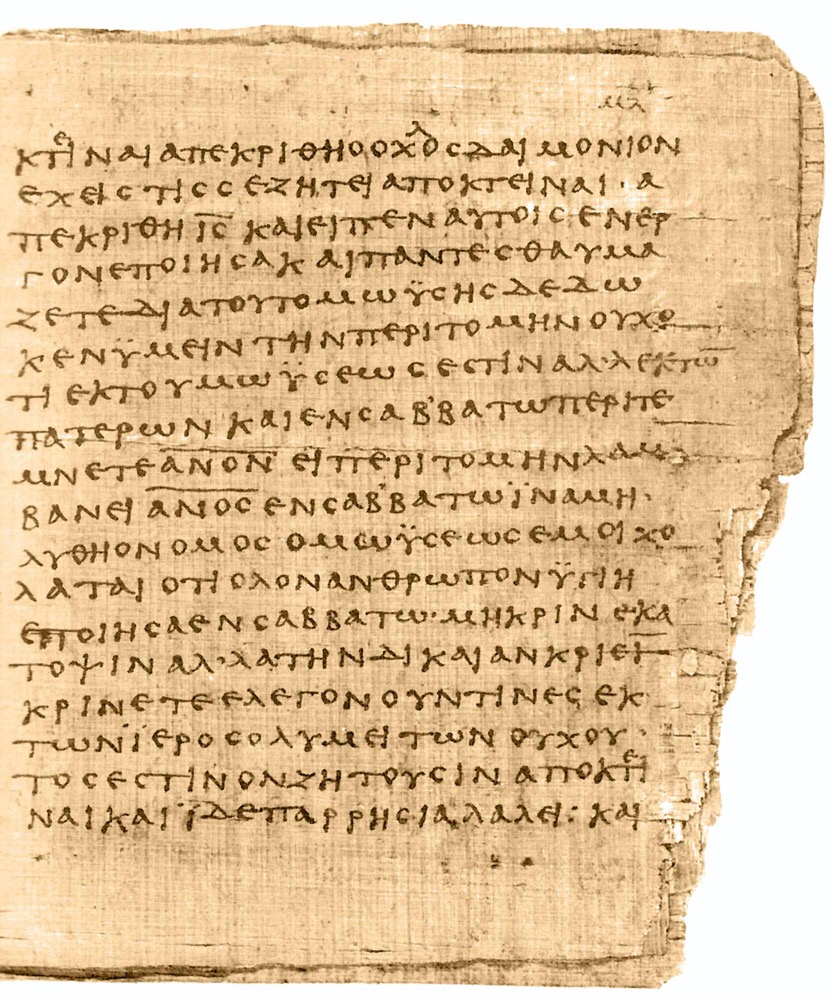 μλ
κτεῖναι απεκριθη ο οχλος δαιμονιον
εχεις τις σε ζητει αποκτειναι · α
πεκριθη ις και ειπεν αυτοις εν ερ
γον εποιησα και παντες θαυμα
ζετε δια τουτο μωϋσης δεδω
κεν ϋμειν την περιτομην ουχ ο
τι εκ του μωϋσεως εστιν αλ᾽λ εκ τω̅
πατερων και εν σαβ᾽βατω περιτε
μνετε ανον ει περιτομην λαμ
βανει ανος εν σαβ᾽βατω ϊνα μη
λυθη ο νομος ο μωϋσεως εμοι χο
λαται οτι ολον ανθρωπον ϋγιη
εποιησα εν σαββατω · μη κρινε κα
τ οψιν αλ᾽λα την δικαιαν κρισι̅
κρινετε ελεγον ουν τινες εκ
των ϊεροσολυμειτων ουχ ου
τος εστιν ον ζητουσιν αποκτεῖ
ναι και ϊδε παρρησια λαλει : και